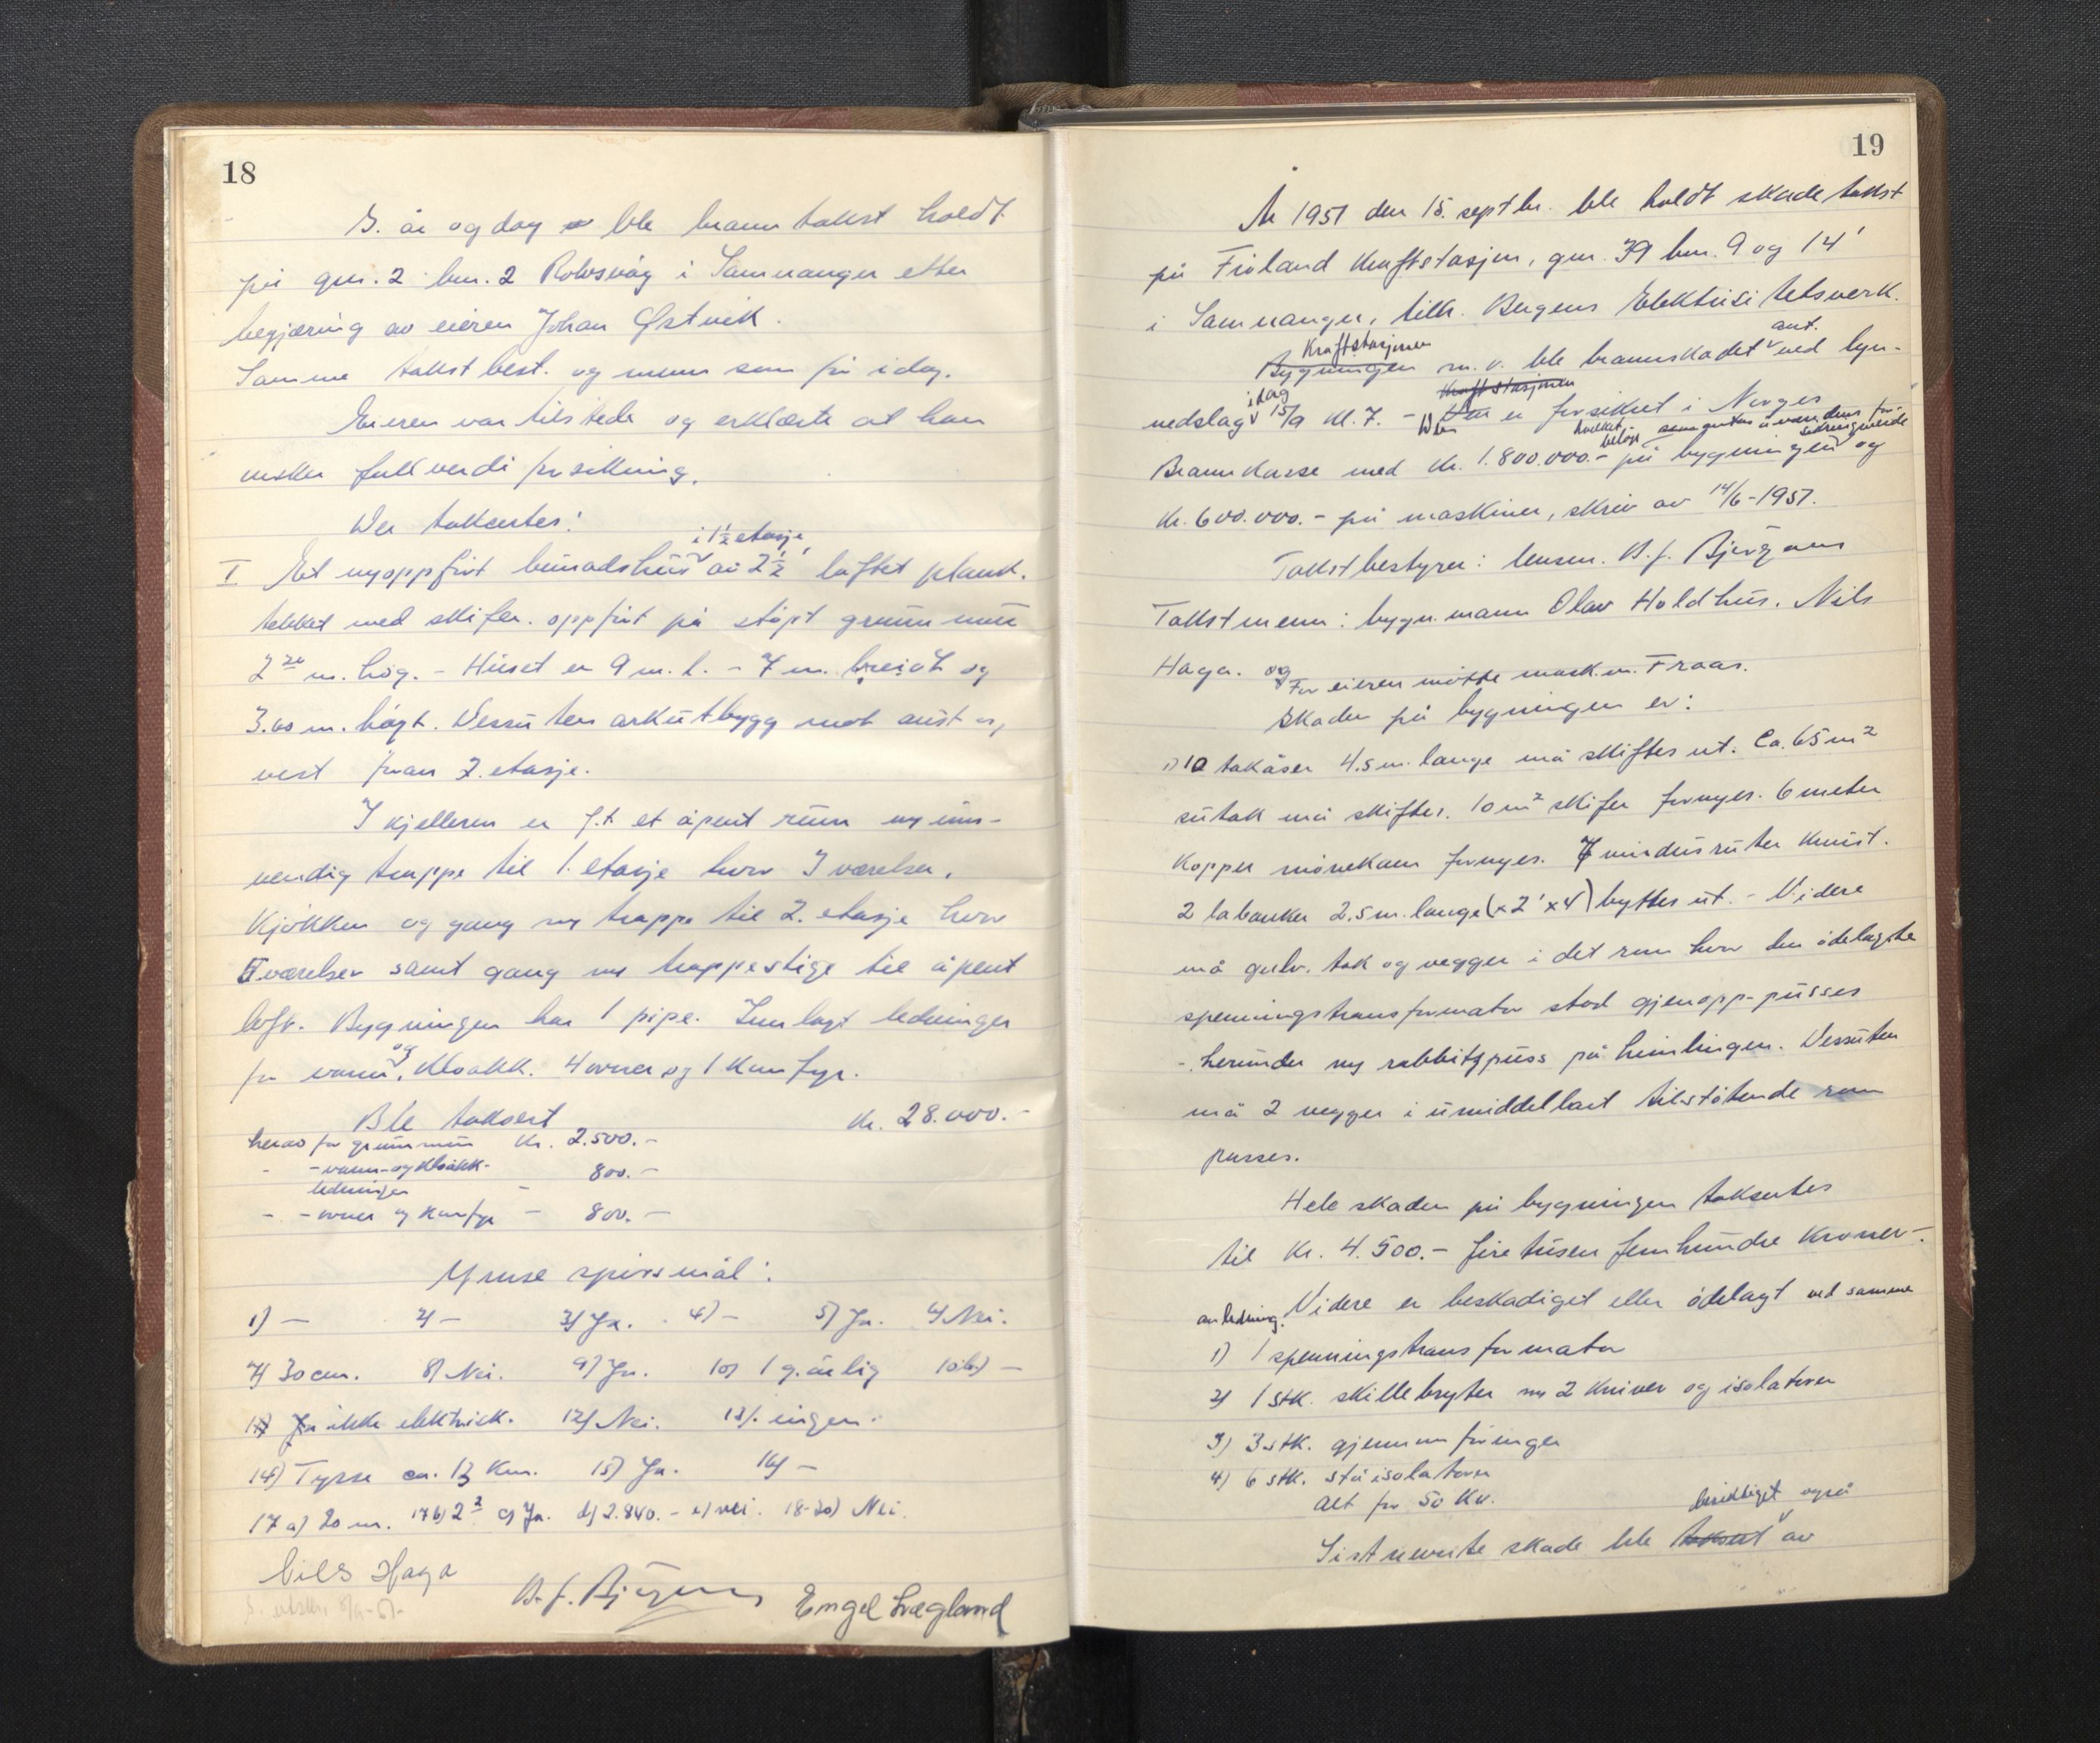 18
S. år og dag ble branntakst holdt
på gnr. 2 bnr. 2 Rolvsvåg i Samnanger etter
begjæring av eieren Johan Østvik.
Samme takstbest. og menn som på idag.
Eieren var tilstede og erklærte at han
ønsker fullverdi forsikring.
Der takseres:
i 1½ etasje
I Et nyoppført beinadshus av 2½" laftet plank.
tekket med skifer. oppført på støpt grunnmur
2 20 m. høg. - Huset er 9 m. l. - 7 m. breidt og
3.60 m. høgt. Dessuten arkutbygg mot aust og
vest fra 2. etasje.
I kjelleren er f.t. et åpent rum m/ inn-
vendig trappe til 1. etasje hvor 3 værelser,
kjøkken og gang m/ trappe til 2. etasje hvor
5 værelser samt gang m/ trappestige til åpent
loft. Bygningen har 1 pipe. Innlagt ledninger
og
for vann, kloakk. 4 ovner og 1 komfyr.
Ble taksert kr. 28.000.-
herav for grunnmur kr. 2.500.-
- - vann- og kloakk-
ledninger - 800.-
- - ovner og komfyr - 800.-
Ymse spørsmål:
1) - 2) - 3) Ja. 4) - 5) Ja. 6) Nei.
7) 30 cm. 8) Nei. 9) Ja. 10) 1 g. årlig 10b) -
11) Ja ikke elektrisk. 12) Nei. 13) ingen.
14) Tysse ca. 13 km. 15) Ja. 16) -
17 a) 20 m. 17b) 2 2 c) Ja. d) 2.840.- e) nei. 18-20) Nei.
Nils Haga
B. J. Bjørgans Engel Lægland
S. utskr. 8/9-51-
19
År 1951 den 15. septbr. ble holdt skadetakst
på Frøland Kraftstasjon, gnr. 39 bnr. 9 og 14
i Samnanger, tilh. Bergens Elektrisitetsverk.
Kraftstasjonen ant.
Bygningen m. v. ble brannskadet ved lyn-
idag Kraftstasjonen
nedslag 15/9 kl. 7. - Den er forsikret i Norges
hvilket beløp som antas å være dens forsikringsverdi
Brannkasse med kr. 1.800.000.- på bygningen og
kr. 600.000.- på maskiner, skriv av 14/6-1951.
Takstbestyrer: lensm. B. J. Bjørgans
Takstmenn: bygn.mann Olav Holdhus. Nils
Haga. og For eieren møtte mask.m. Fraas.
Skaden på bygningen er:
1) 10 takåser 4.5 m. lange må skiftes ut. Ca. 65 m²
sutak må skiftes. 10 m² skifer fornyes. 6 meter
kopper mønekam fornyes. 7 vindusruter knust.
2 labanker 2.5 m. lange (x 2' x 4) byttes ut. - Videre
må gulv, tak og vegger i det rom hvor den ødelagte
spenningstransformator stod gjenopp-pusses
- herunder ny rabbitzpuss på himlingen. Dessuten
må 2 vegger i umiddelbart tilstøtende rom
pusses.
Hele skaden på bygningen takseres
til kr. 4.500.- firetusen femhundre kroner-.
Videre er beskadiget eller ødelagt ved samme
anledning.
1) 1 spenningstransformator
2) 1 stk. skillebryter m/ 2 kniver og isolatorer
3) 3 stk. gjennomføringer
4) 6 stk. støisolatorer
alt for 50 Kv.
besiktiget også
Sistnevnte skade ble taksert av